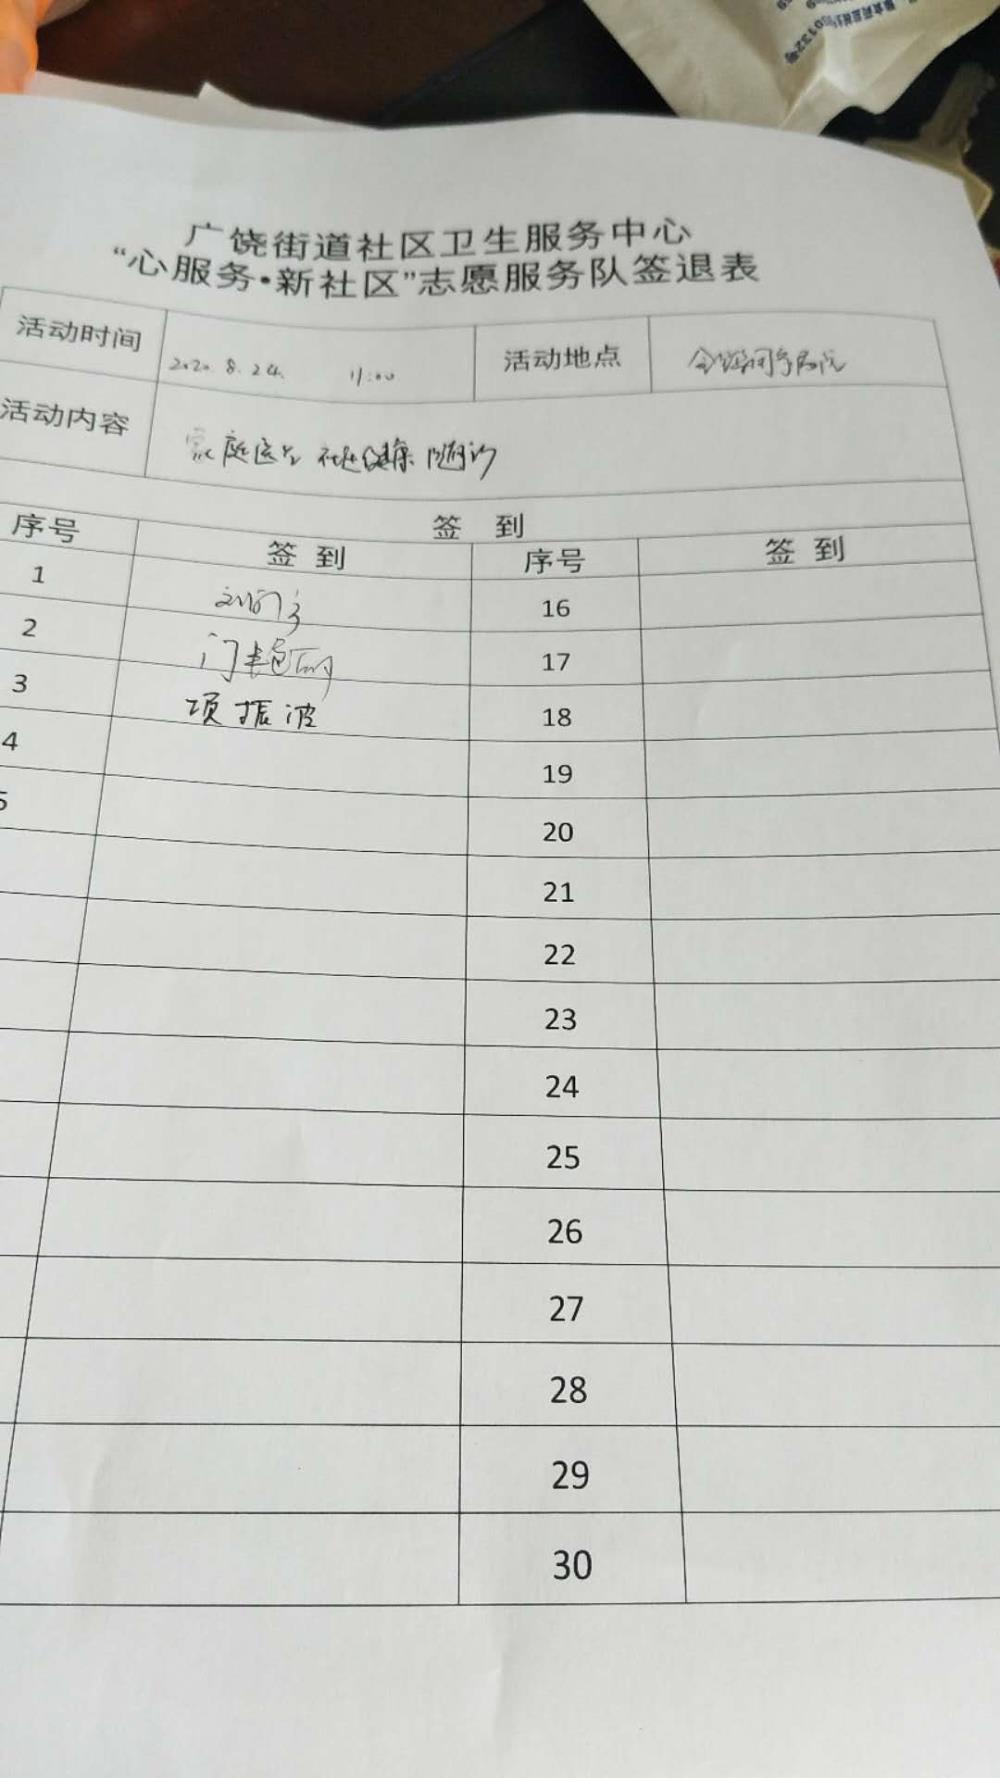 广饶街道社区卫生服务中心
“心服务·新社区”志愿服务队签退表
活动时间 2020.8.24. 11:00 活动地点
活动内容 家庭医生 社区健康随访
签 到
序号 签 到 序号 签 到
1 16
2 17
3 项振波 18
4 19
5 20
21
22
23
24
25
26
27
28
29
30